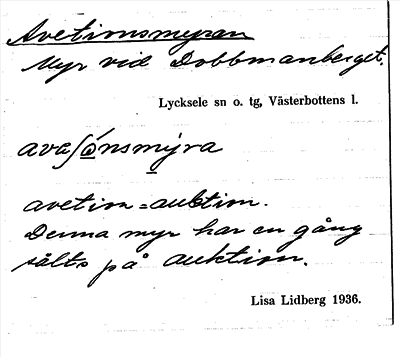 Avetionsmyran
Myr vid Dobbmanberget.
Lycksele sn o. tg, Västerbottens l.
avaʃǫ́nsmy̱ra
avetion = auktion.
Denna myr har en gång
sålts på auktion.
Lisa Lidberg 1936.